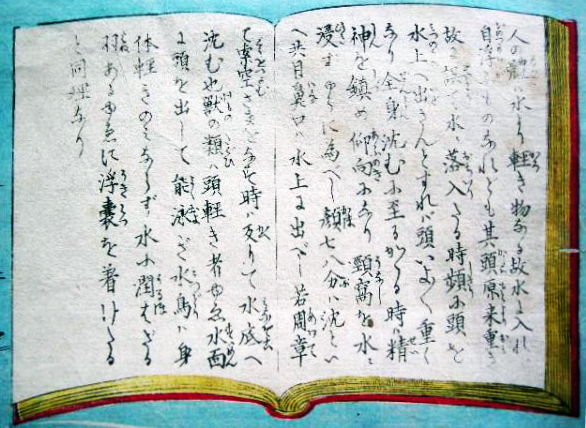 人の體ハ水より軽き物なる故水に入れバ
自浮くものなれども其頭原来重き
故 水に落入たる時頻に頭を
水上へ出さんとすれバ頭いよ〱重く
なり全身沈むに至るかゝる時ハ精
神を鎮め仰向になり頸窩を水に
浸す やうに為べし顔七八分ハ沈とい
へ共目鼻口ハ水上に出べし若周章
て 空さまをなす時ハ反りて水底へ
沈む也獣の類ハ頭軽き者ゆゑ水面
に頭を出して能游ぎ水鳥ハ身
体軽きのミならず水に潤はざる
羽あるゆゑに浮嚢を着けたる
と同理なり